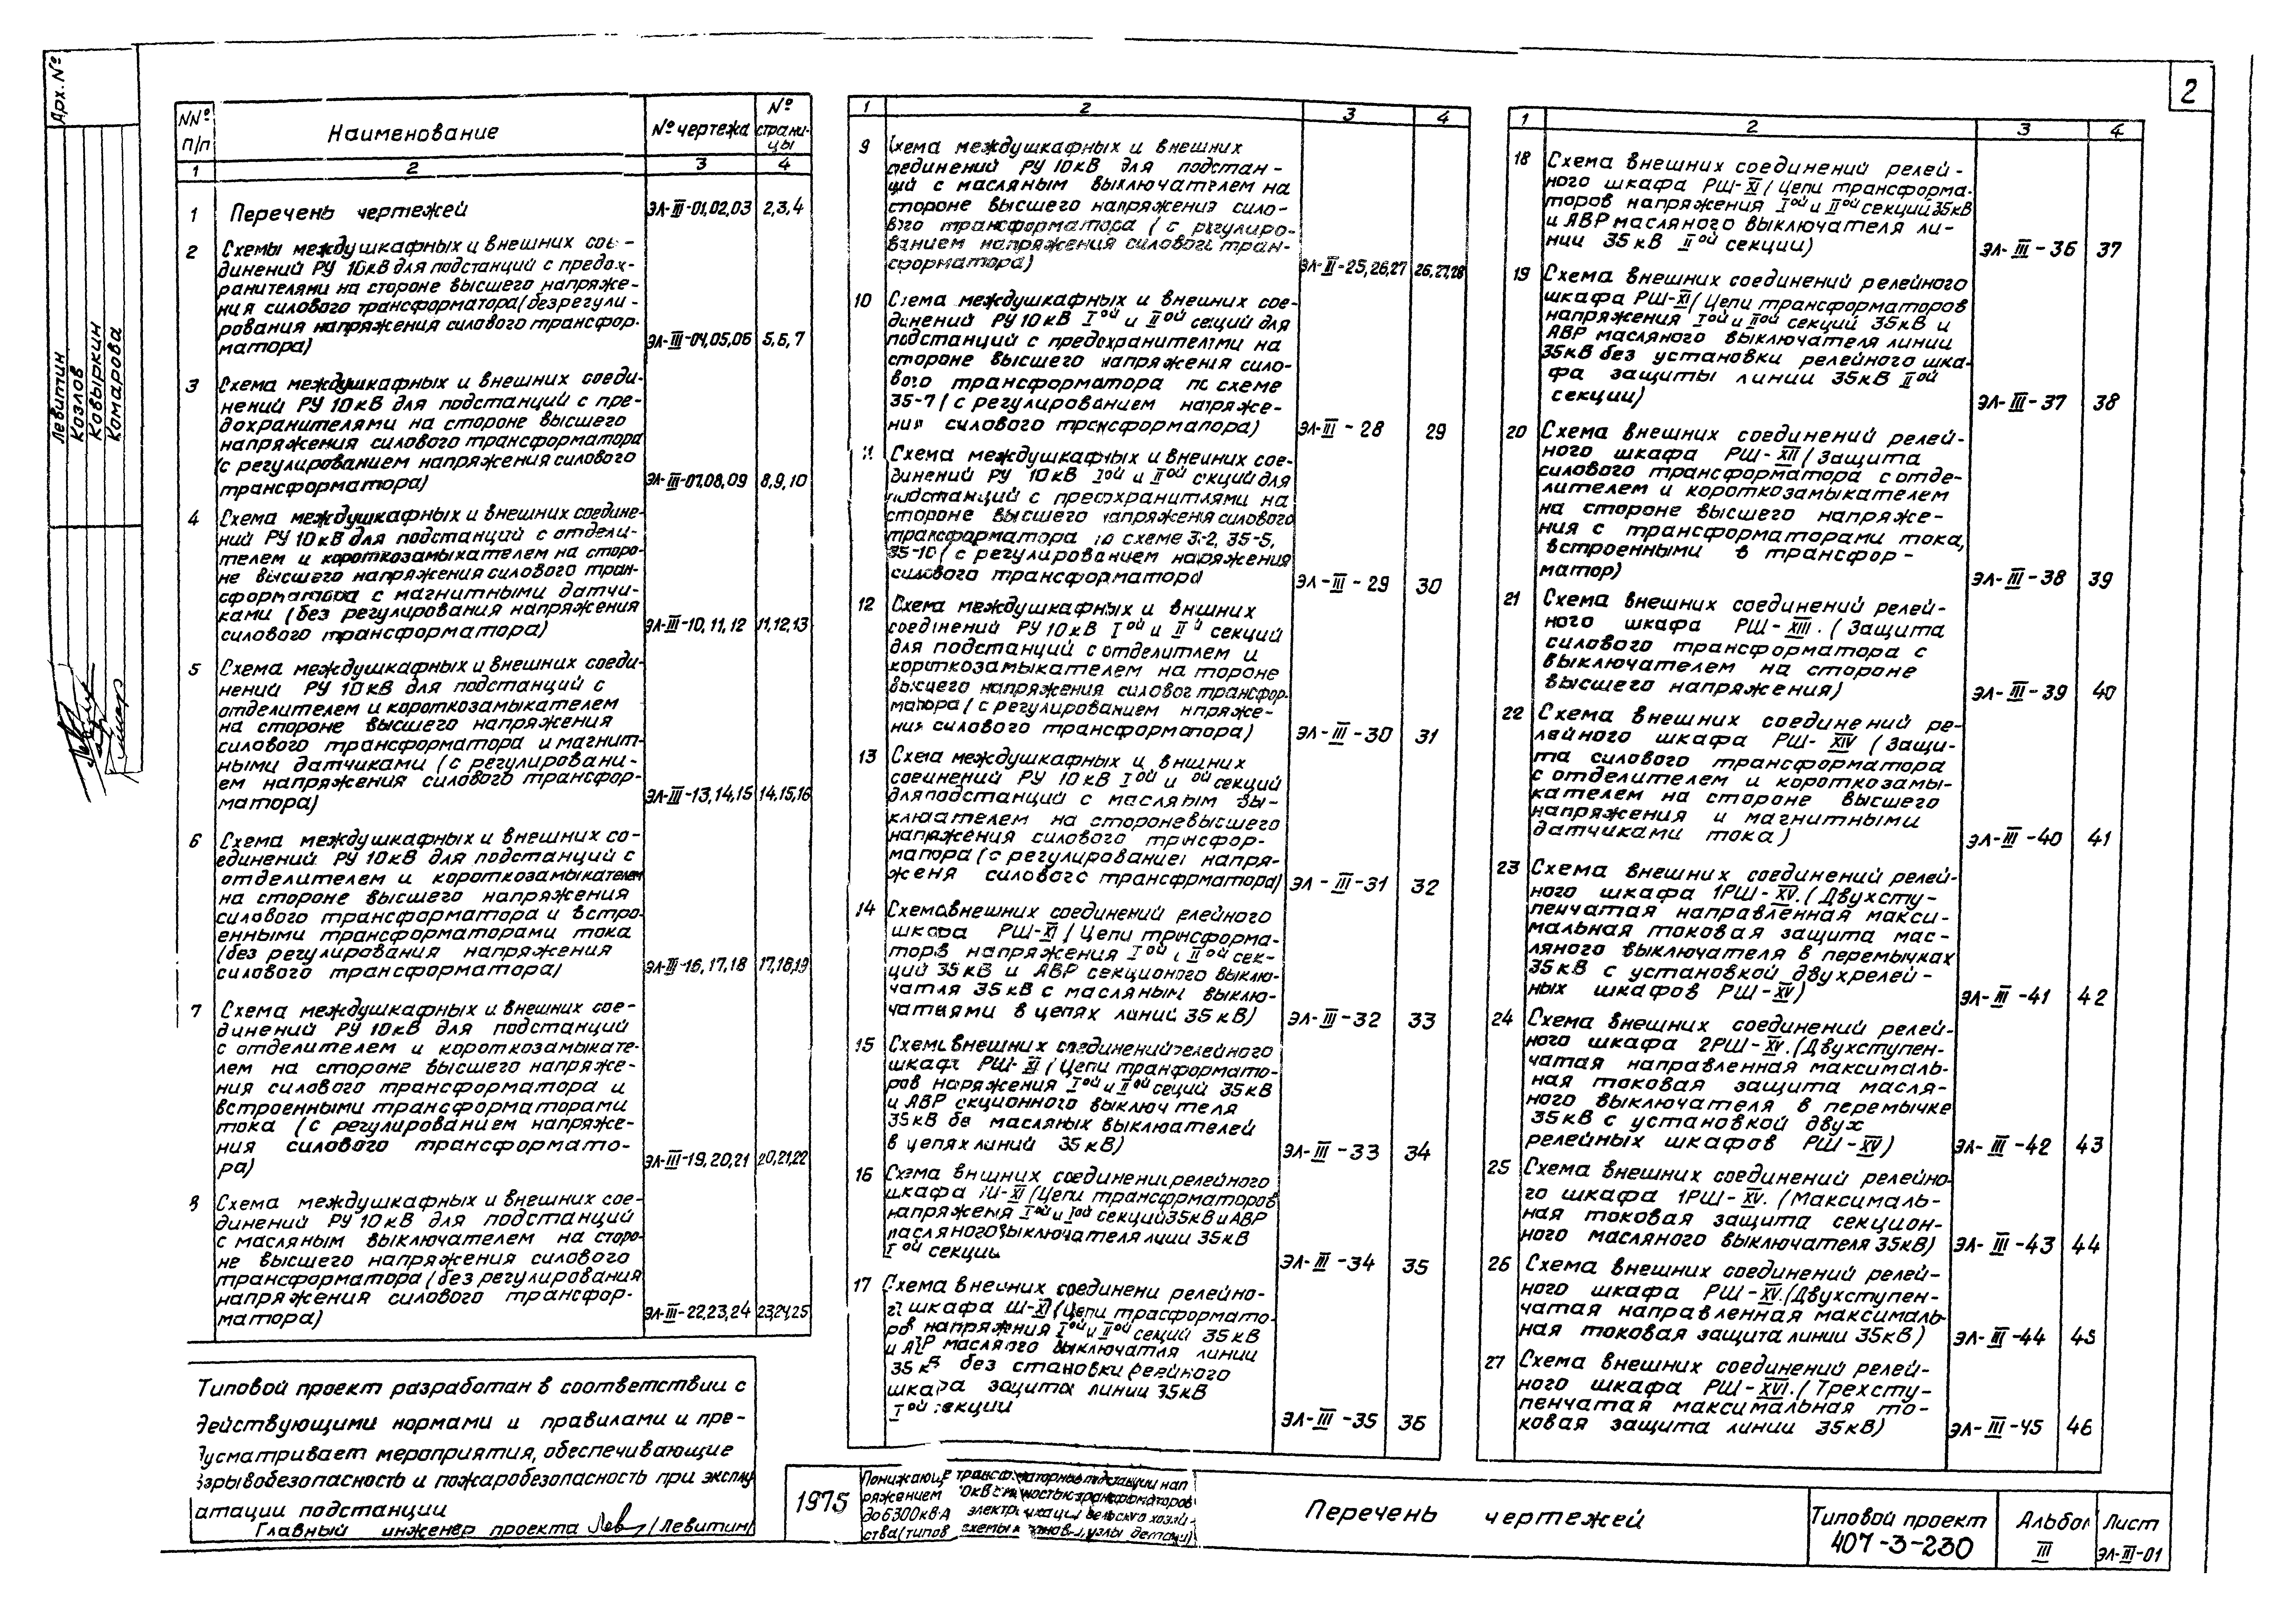 2
Арх. №
Левитин
Козлов
Ковыркин
Комарова
№№ п/п
Наименование
№ чертежа
№ страницы
1 2 3 4
1 Перечень чертежей ЭЛ-III-01,02,03 2,3,4
2 Схемы междушкафных и внешних сое-
динений РУ 10кВ для подстанций с предох-
ранителями на стороне высшего напряже-
ния силового трансформатора (без регули-
рования напряжения силового трансфор-
матора) ЭЛ-III-04,05,06 5,6,7
3 Схема междушкафных и внешних соеди-
нений РУ 10кВ для подстанций с пре-
дохранителями на стороне высшего
напряжения силового трансформатора
(с регулированием напряжения силового
трансформатора) ЭЛ-III-07,08,09 8,9,10
4 Схема междушкафных и внешних соедине-
ний РУ 10кВ для подстанций с отдели-
телем и короткозамыкателем на сторо-
не высшего напряжения силового тран-
сформатора с магнитными датчи-
ками (без регулирования напряжения
силового трансформатора) ЭЛ-III-10,11,12 11,12,13
5 Схема междушкафных и внешних соеди-
нений РУ 10кВ для подстанций с
отделителем и короткозамыкателем
на стороне высшего напряжения
силового трансформатора и магнит-
ными датчиками (с регулировани-
ем напряжения силового трансфор-
матора) ЭЛ-III-13,14,15 14,15,16
6 Схема междушкафных и внешних со-
единений РУ 10кВ для подстанций с
отделителем и короткозамыкателем
на стороне высшего напряжения
силового трансформатора и встро-
енными трансформаторами тока
(без регулирования напряжения
силового трансформатора) ЭЛ-III-16,17,18 17,18,19
7 Схема междушкафных и внешних сое-
динений РУ 10кВ для подстанций
с отделителем и короткозамыкате-
лем на стороне высшего напряже-
ния силового трансформатора и
встроенными трансформаторами
тока (с регулированием напряже-
ния силового трансформато-
ра) ЭЛ-III-19,20,21 20,21,22
8 Схема междушкафных и внешних сое-
динений РУ 10кВ для подстанций
с масляным выключателем на сторо-
не высшего напряжения силового
трансформатора (без регулирования
напряжения силового трансфор-
матора) ЭЛ-III-22,23,24 23,24,25
Типовой проект разработан в соответствии с
действующими нормами и правилами и пре-
дусматривает мероприятия, обеспечивающие
взрывобезопасность и пожаробезопасность при эксплу
атации подстанции
Главный инженер проекта Лев /Левитин/
1 2 3 4
9 Схема междушкафных и внешних
соединений РУ 10кВ для подстан-
ций с масляным выключателем на
стороне высшего напряжения сило-
вого трансформатора (с регулиро-
ванием напряжения силового тран-
сформатора) ЭЛ-III-25,26,27 26,27,28
10 Схема междушкафных и внешних сое-
динений РУ 10кВ Iой и IIой секций для
подстанций с предохранителями на
стороне высшего напряжения сило-
вого трансформатора по схеме
35-7 (с регулированием напряже-
ния силового трансформатора) ЭЛ-III-28 29
11 Схема междушкафных и внешних сое-
динений РУ 10кВ Iой и IIой секций для
подстанций с предохранителями на
стороне высшего напряжения силового
трансформатора по схеме 35-2, 35-5,
35-10 (с регулированием напряжения
силового трансформатора) ЭЛ-III-29 30
12 Схема междушкафных и внешних
соединений РУ 10кВ Iой и IIой секций
для подстанций с отделителем и
короткозамыкателем на стороне
высшего напряжения силового трансфор-
матора (с регулированием напряже-
ния силового трансформатора) ЭЛ-III-30 31
13 Схема междушкафных и внешних
соединений РУ 10кВ Iой и IIой секций
для подстанций с масляным вы-
ключателем на стороне высшего
напряжения силового трансфор-
матора (с регулированием напря-
жения силового трансформатора) ЭЛ-III-31 32
14 Схема внешних соединений релейного
шкафа РШ-XI (Цепи трансформа-
торов напряжения Iой и IIой сек-
ций 35кВ и АВР секционного выклю-
чателя 35кВ с масляным выклю-
чателями в цепях линий 35кВ) ЭЛ-III-32 33
15 Схема внешних соединений релейного
шкафа РШ-XI (Цепи трансформато-
ров напряжения Iой и IIой секций 35кВ
и АВР секционного выключателя
35кВ без масляных выключателей
в цепях линий 35кВ) ЭЛ-III-33 34
16 Схема внешних соединений релейного
шкафа РШ-XI (Цепи трансформаторов
напряжения Iой и IIой секций 35кВ и АВР
масляного выключателя линии 35кВ
Iой секции ЭЛ-III-34 35
17 Схема внешних соединений релейно-
го шкафа РШ-XI (Цепи трансформато-
ров напряжения Iой и IIой секций 35кВ
и АВР масляного выключателя линии
35кВ без установки релейного
шкафа защиты линии 35кВ
Iой секции ЭЛ-III-35 36
1 2 3 4
18 Схема внешних соединений релей-
ного шкафа РШ-XI (Цепи трансформа-
торов напряжения Iой и IIой секций 35кВ
и АВР масляного выключателя ли-
нии 35кВ IIой секции) ЭЛ-III-36 37
19 Схема внешних соединений релейного
шкафа РШ-XI (Цепи трансформаторов
напряжения Iой и IIой секций 35кВ и
АВР масляного выключателя линии
35кВ без установки релейного шка-
фа защиты линии 35кВ IIой
секции) ЭЛ-III-37 38
20 Схема внешних соединений релей-
ного шкафа РШ-XII (Защита
силового трансформатора с отде-
лителем и короткозамыкателем
на стороне высшего напряже-
ния с трансформаторами тока,
встроенными в трансфор-
матор) ЭЛ-III-38 39
21 Схема внешних соединений релей-
ного шкафа РШ-XIII. (Защита
силового трансформатора с
выключателем на стороне
высшего напряжения) ЭЛ-III-39 40
22 Схема внешних соединений ре-
лейного шкафа РШ-XIV (Защи-
та силового трансформатора
с отделителем и короткозамы-
кателем на стороне высшего
напряжения и магнитными
датчиками тока) ЭЛ-III-40 41
23 Схема внешних соединений релей-
ного шкафа 1РШ-XV. (Двухсту-
пенчатая направленная макси-
мальная токовая защита мас-
ляного выключателя в перемычках
35кВ с установкой двухрелей-
ных шкафов РШ-XV) ЭЛ-III-41 42
24 Схема внешних соединений релей-
ного шкафа 2РШ-XV. (Двухступен-
чатая направленная максималь-
ная токовая защита масля-
ного выключателя в перемычке
35кВ с установкой двух
релейных шкафов РШ-XV) ЭЛ-III-42 43
25 Схема внешних соединений релейно-
го шкафа 1РШ-XV. (Максималь-
ная токовая защита секцион-
ного масляного выключателя 35кВ) ЭЛ-III-43 44
26 Схема внешних соединений релей-
ного шкафа РШ-XV. (Двухступен-
чатая направленная максималь-
ная токовая защита линии 35кВ) ЭЛ-III-44 45
27 Схема внешних соединений релей-
ного шкафа РШ-XVI. (Трехсту-
пенчатая максимальная то-
ковая защита линии 35кВ) ЭЛ-III-45 46
1975
Понижающие трансформаторные подстанции нап
ряжением
до 6300кВ·А электрификации сельского хозяй-
ства (типов схемы узлы детали)
Перечень чертежей
Типовой проект
407-3-230
Альбом
III
Лист
ЭЛ-III-01